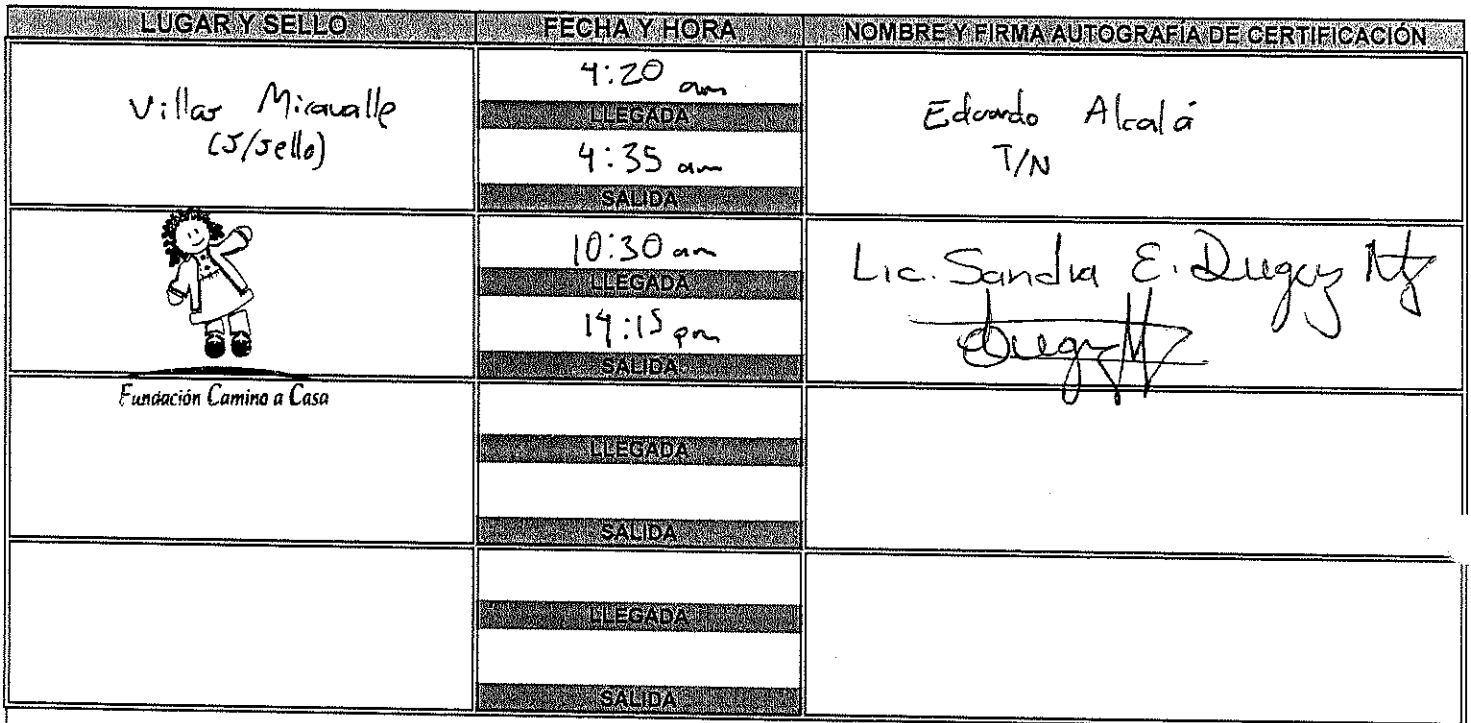 LUGAR Y SELLO FECHA Y HORA NOMBRE Y FIRMA AUTOGRAFÍA DE CERTIFICACIÓN
Villas Miravalle
(s/sello)
4:20 am
LLEGADA
4:35 am
SALIDA
Eduardo Alcalá
T/N
Fundación Camino a Casa
10:30 am
LLEGADA
14:15 pm
SALIDA
Lic. Sandra E. Mtz
LLEGADA
SALIDA
LLEGADA
SALIDA